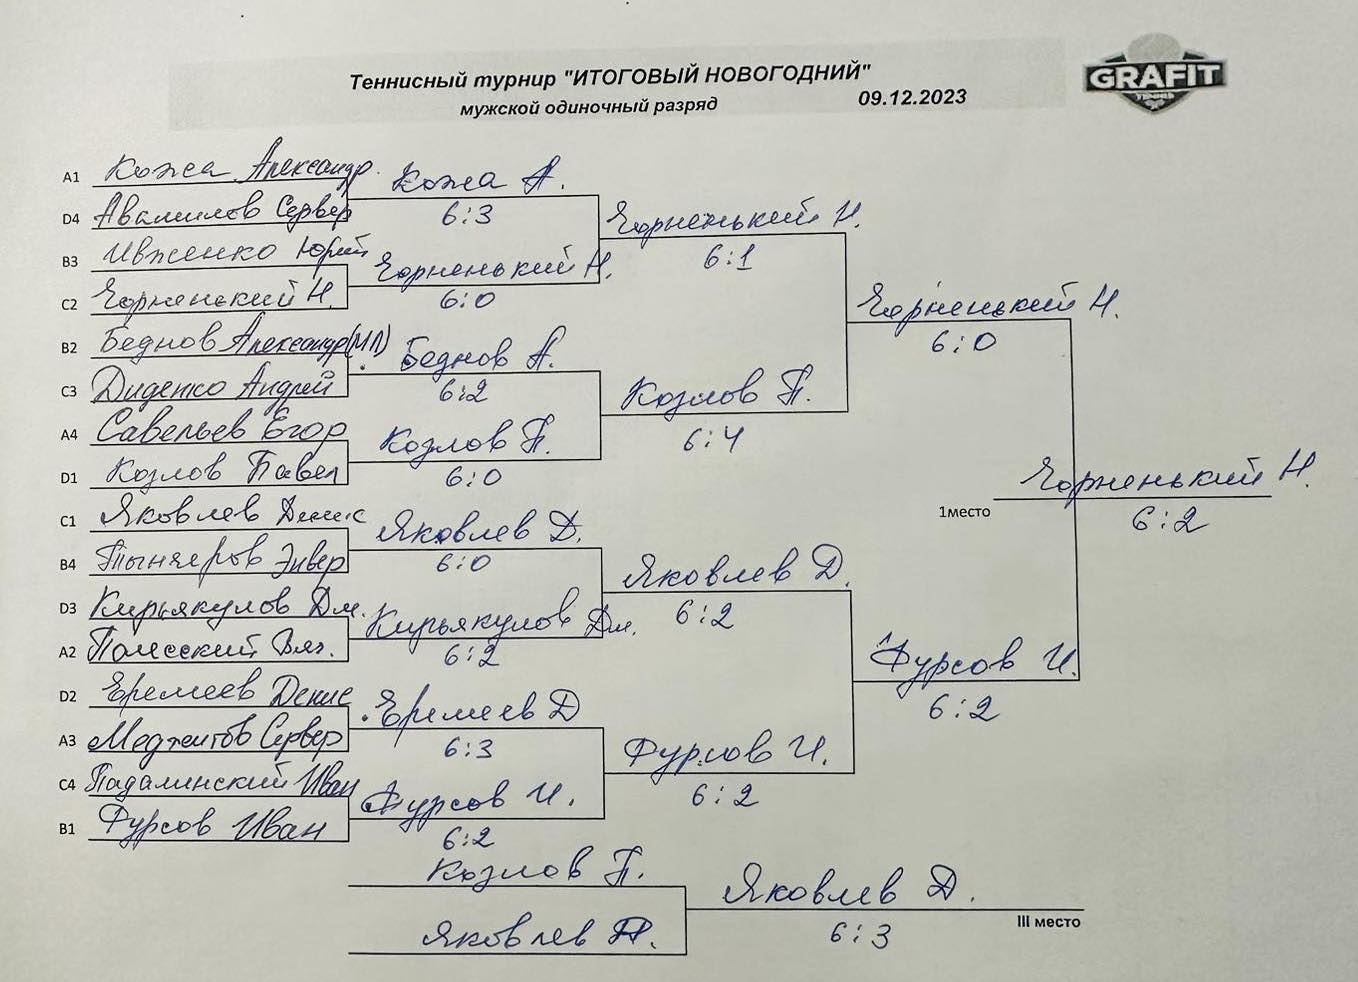 Теннисный турнир "ИТОГОВЫЙ НОВОГОДНИЙ"
мужской одиночный разряд
09.12.2023
GRAFIT
TENNIS
A1 Кожа Александр.
D4 Авамилов Сервер
B3 Ивженко Юрий
C2 Чорненький Н.
B2 Беднов Александр(МЛ)
C3 Диденко Андрей
A4 Савельев Егор
D1 Козлов Павел
C1 Яковлев Денис
B4 Тынчеров Энвер
D3 Кирьякулов Дм.
A2 Полесский Вяч.
D2 Еремеев Денис
A3 Меджитов Сервер
C4 Падалинский Иван
B1 Фурсов Иван
Кожа А.
6:3
Чорненький Н.
6:0
Беднов А.
6:2
Козлов П.
6:0
Яковлев Д.
6:0
Кирьякулов Дм.
6:2
Еремеев Д
6:3
Фурсов И.
6:2
Чорненький Н.
6:1
Козлов П.
6:4
Яковлев Д.
6:2
Фурсов И.
6:2
Чорненький Н.
6:0
Фурсов И.
6:2
Чорненький Н.
1место
6:2
Козлов П.
Яковлев Д.
Яковлев Д.
III место
6:3